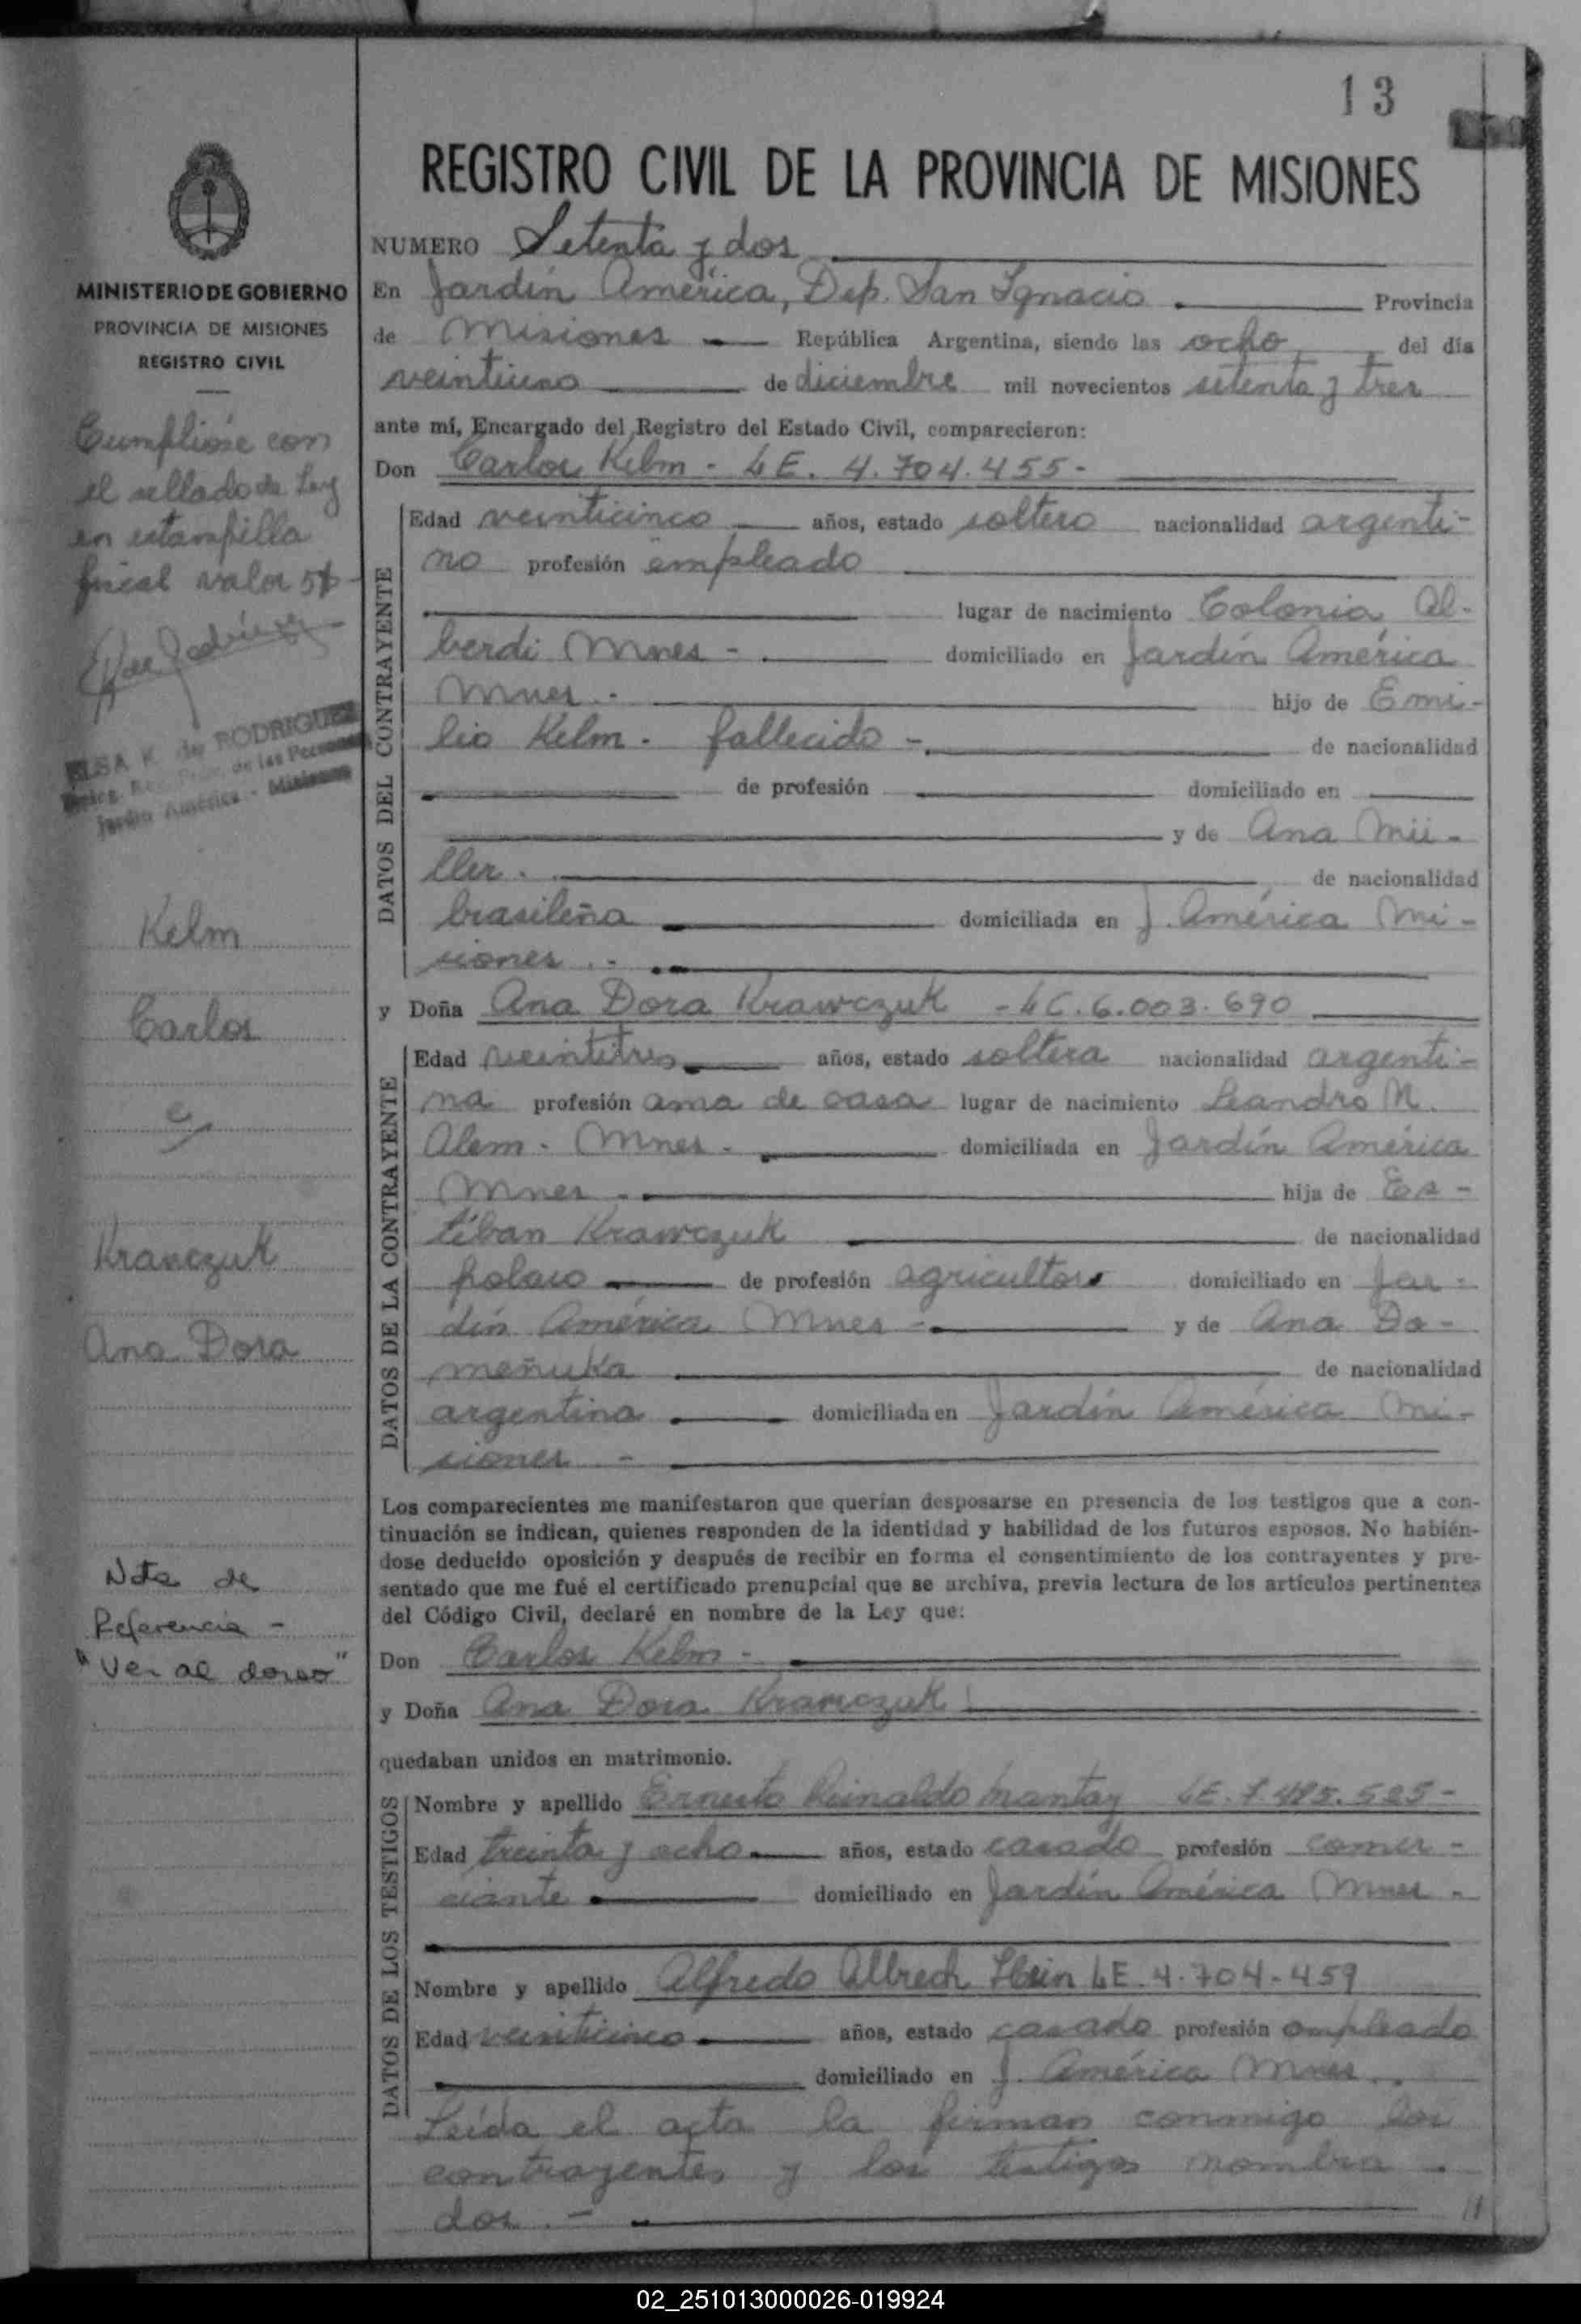 13
REGISTRO CIVIL DE LA PROVINCIA DE MISIONES
NUMERO Setenta y dos
En Jardín América, Dep. San Ignacio. Provincia
de Misiones República Argentina, siendo las ocho del día
veintiuno de diciembre mil novecientos setenta y tres
ante mí, Encargado del Registro del Estado Civil, comparecieron:
Don Carlos Kelm - LE. 4.704.455-
DATOS DEL CONTRAYENTE
Edad veinticinco años, estado soltero nacionalidad argenti-
no profesión empleado
lugar de nacimiento Colonia Al-
berdi Mnes - domiciliado en Jardín América
Mnes. - hijo de Emi-
lio Kelm. fallecido - de nacionalidad
de profesión domiciliado en
y de Ana Mü-
ller. de nacionalidad
brasileña domiciliada en J. América Mi-
siones. -
y Doña Ana Dora Krawczuk - LC. 6.003.690
DATOS DE LA CONTRAYENTE
Edad veintitres años, estado soltera nacionalidad argenti-
na profesión ama de casa lugar de nacimiento Leandro N.
Alem - Mnes - domiciliada en Jardín América
Mnes. hija de Es-
téban Krawczuk de nacionalidad
polaco de profesión agricultor domiciliado en Jar-
dín América Mnes - y de Ana Do-
meñuka de nacionalidad
argentina domiciliada en Jardín América Mi-
siones. -
Los comparecientes me manifestaron que querían desposarse en presencia de los testigos que a con-
tinuación se indican, quienes responden de la identidad y habilidad de los futuros esposos. No habién-
dose deducido oposición y después de recibir en forma el consentimiento de los contrayentes y pre-
sentado que me fué el certificado prenupcial que se archiva, previa lectura de los artículos pertinentes
del Código Civil, declaré en nombre de la Ley que:
Don Carlos Kelm -
y Doña Ana Dora Krawczuk
quedaban unidos en matrimonio.
DATOS DE LOS TESTIGOS
Nombre y apellido Ernesto Reinaldo Mantay LE. 7.485.525-
Edad treinta y ocho años, estado casado profesión comer-
ciante domiciliado en Jardín América Mnes -
Nombre y apellido Alfredo Albrech Hein LE. 4.704.459
Edad veinticinco años, estado casado profesión empleado
domiciliado en J. América Mnes.
Leída el acta la firman conmigo los
contrayentes y los testigos nombra-
dos. -
MINISTERIO DE GOBIERNO
PROVINCIA DE MISIONES
REGISTRO CIVIL
Cumplióse con
el sellado de Ley
en estampilla
fiscal valor 5$
ELSA K. de RODRIGUEZ
de las Personas
Jardín América - Misiones
Kelm
Carlos
c/
Krawczuk
Ana Dora
Nota de
Referencia -
"Ver al dorso"
02_251013000026-019924